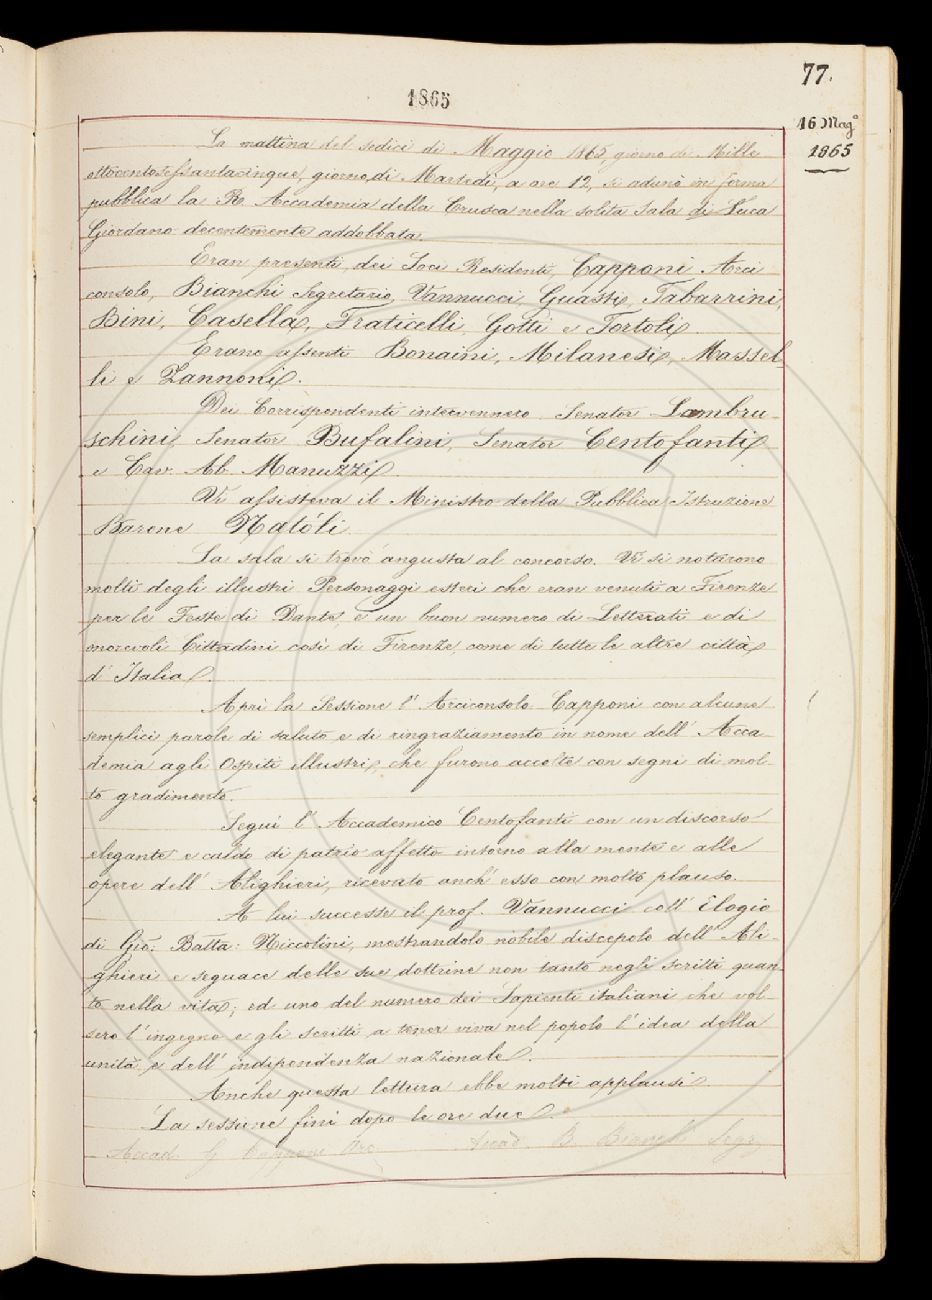 77.
1865
16 Mago
1865
La mattina del sedici di Maggio 1865, giorno di Mille
ottocentosessantacinque, giorno di Martedì, a ore 12, si adunò in forma
pubblica la R. Accademia della Crusca nella solita Sala di Luca
Giordano decentemente addobbata.
Eran presenti, dei Soci Residenti, Capponi Arci
consolo, Bianchi Segretario, Vannucci, Guasti, Tabarrini,
Bini, Casella, Fraticelli, Gotti e Tortoli
Erano assenti Bonaini, Milanesi, Massel-
li e Zannoni.
Dei Corrispondenti intervennero Senator Lambru-
schini, Senator Bufalini, Senator Centofanti
e Cav. Ab. Manuzzi
Vi assisteva il Ministro della Pubblica Istruzione
Barone Natóli.
La sala si trovò angusta al concorso. Vi si notarono
molti degli illustri Personaggi esteri che eran venuti a Firenze
per le Feste di Dante, e un buon numero di Letterati e di
onorevoli Cittadini così di Firenze, come di tutte le altre città
d' Italia.
Aprì la Sessione l' Arciconsolo Capponi con alcune
semplici parole di saluto e di ringraziamento in nome dell' Acca-
demia agli Ospiti illustri, che furono accolte con segni di mol-
to gradimento.
Seguì l' Accademico Centofanti con un discorso
elegante e caldo di patrio affetto intorno alla mente e alle
opere dell' Alighieri, ricevuto anch' esso con molto plauso.
A lui successe il prof. Vannucci coll' Elogio
di Gio: Batta: Niccolini, mostrandolo nobile discepolo dell' Ali-
ghieri e seguace delle sue dottrine non tanto negli scritti quan-
to nella vita; ed uno del numero dei Sapienti italiani che vol-
sero l' ingegno e gli scritti a tener viva nel popolo l' idea della
unità e dell' indipendenza nazionale.
Anche questa lettura ebbe molti applausi.
La sessione finì dopo le ore due.
Accad. G. Capponi Arc. Accad. B. Bianchi Segr.